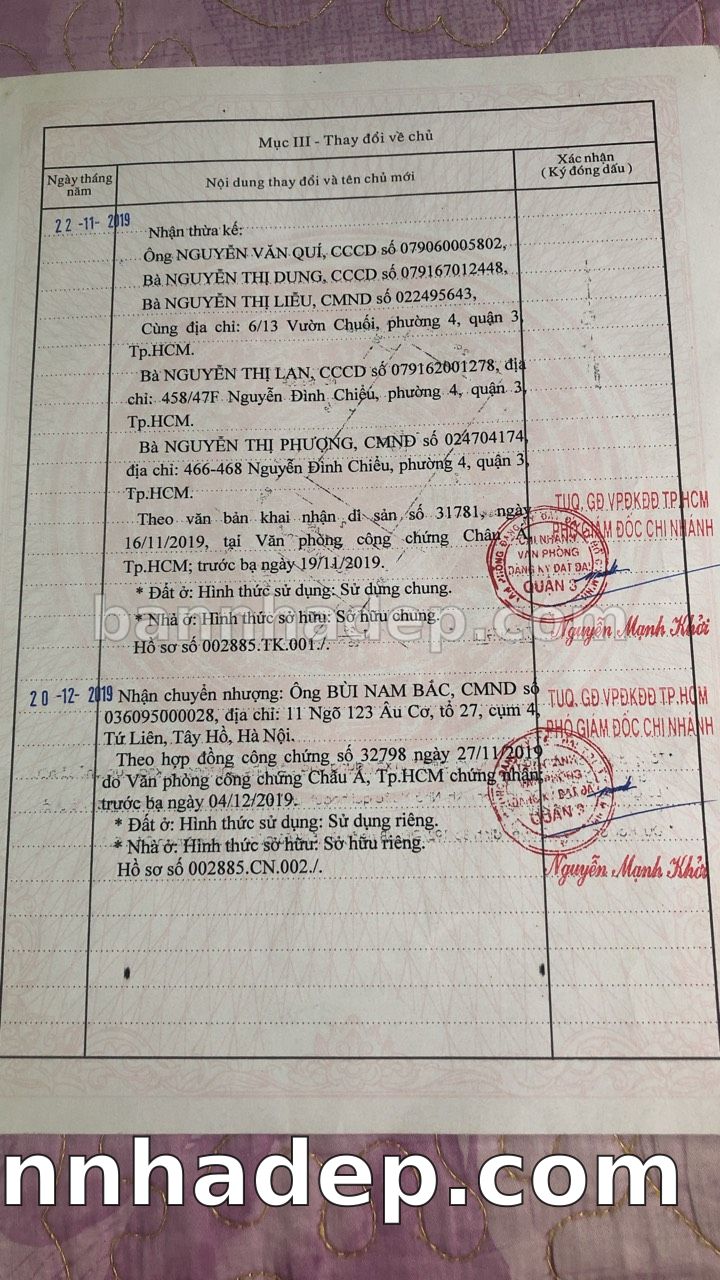 Mục III - Thay đổi về chủ
Ngày tháng năm
Nội dung thay đổi và tên chủ mới
Xác nhận
( Ký đóng dấu )
22-11-2019
Nhận thừa kế:
Ông NGUYỄN VĂN QUÍ, CCCD số 079060005802,
Bà NGUYỄN THỊ DUNG, CCCD số 079167012448,
Bà NGUYỄN THỊ LIỄU, CMND số 022495643,
Cùng địa chỉ: 6/13 Vườn Chuối, phường 4, quận 3,
Tp.HCM.
Bà NGUYỄN THỊ LAN, CCCD số 079162001278, địa
chỉ: 458/47F Nguyễn Đình Chiểu, phường 4, quận 3,
Tp.HCM.
Bà NGUYỄN THỊ PHƯỢNG, CMND số 024704174,
địa chỉ: 466-468 Nguyễn Đình Chiểu, phường 4, quận 3,
Tp.HCM.
Theo văn bản khai nhận di sản số 31781, ngày
16/11/2019, tại Văn phòng công chứng Châu Á,
Tp.HCM; trước bạ ngày 19/11/2019.
* Đất ở: Hình thức sử dụng: Sử dụng chung.
* Nhà ở: Hình thức sở hữu: Sở hữu chung.
Hồ sơ số 002885.TK.001./.
TUQ. GĐ.VPĐKĐĐ TP.HCM
PHÓ GIÁM ĐỐC CHI NHÁNH
CHI NHÁNH
VĂN PHÒNG
ĐĂNG KÝ ĐẤT ĐAI
QUẬN 3
Nguyễn Mạnh Khởi
bannhadep.com
20-12-2019
Nhận chuyển nhượng: Ông BÙI NAM BẮC, CMND số
036095000028, địa chỉ: 11 Ngõ 123 Âu Cơ, tổ 27, cụm 4,
Tứ Liên, Tây Hồ, Hà Nội.
Theo hợp đồng công chứng số 32798 ngày 27/11/2019
do Văn phòng công chứng Châu Á, Tp.HCM chứng nhận;
trước bạ ngày 04/12/2019.
* Đất ở: Hình thức sử dụng: Sử dụng riêng.
* Nhà ở: Hình thức sở hữu: Sở hữu riêng.
Hồ sơ số 002885.CN.002./.
TUQ. GĐ.VPĐKĐĐ TP.HCM
PHÓ GIÁM ĐỐC CHI NHÁNH
QUẬN 3
Nguyễn Mạnh Khởi
nnhadep.com